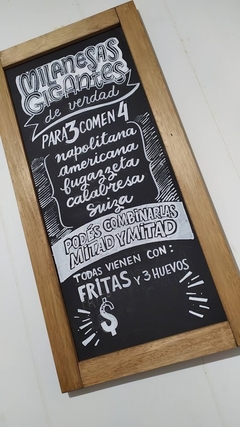 MILANESAS
GIGANTES
de verdad
PARA 3 COMEN 4
napolitana
americana
bugazzeta
calabresa
suiza
PODÉS COMBINARLAS
MITAD Y MITAD
TODAS VIENEN CON:
FRITAS Y 3 HUEVOS
$